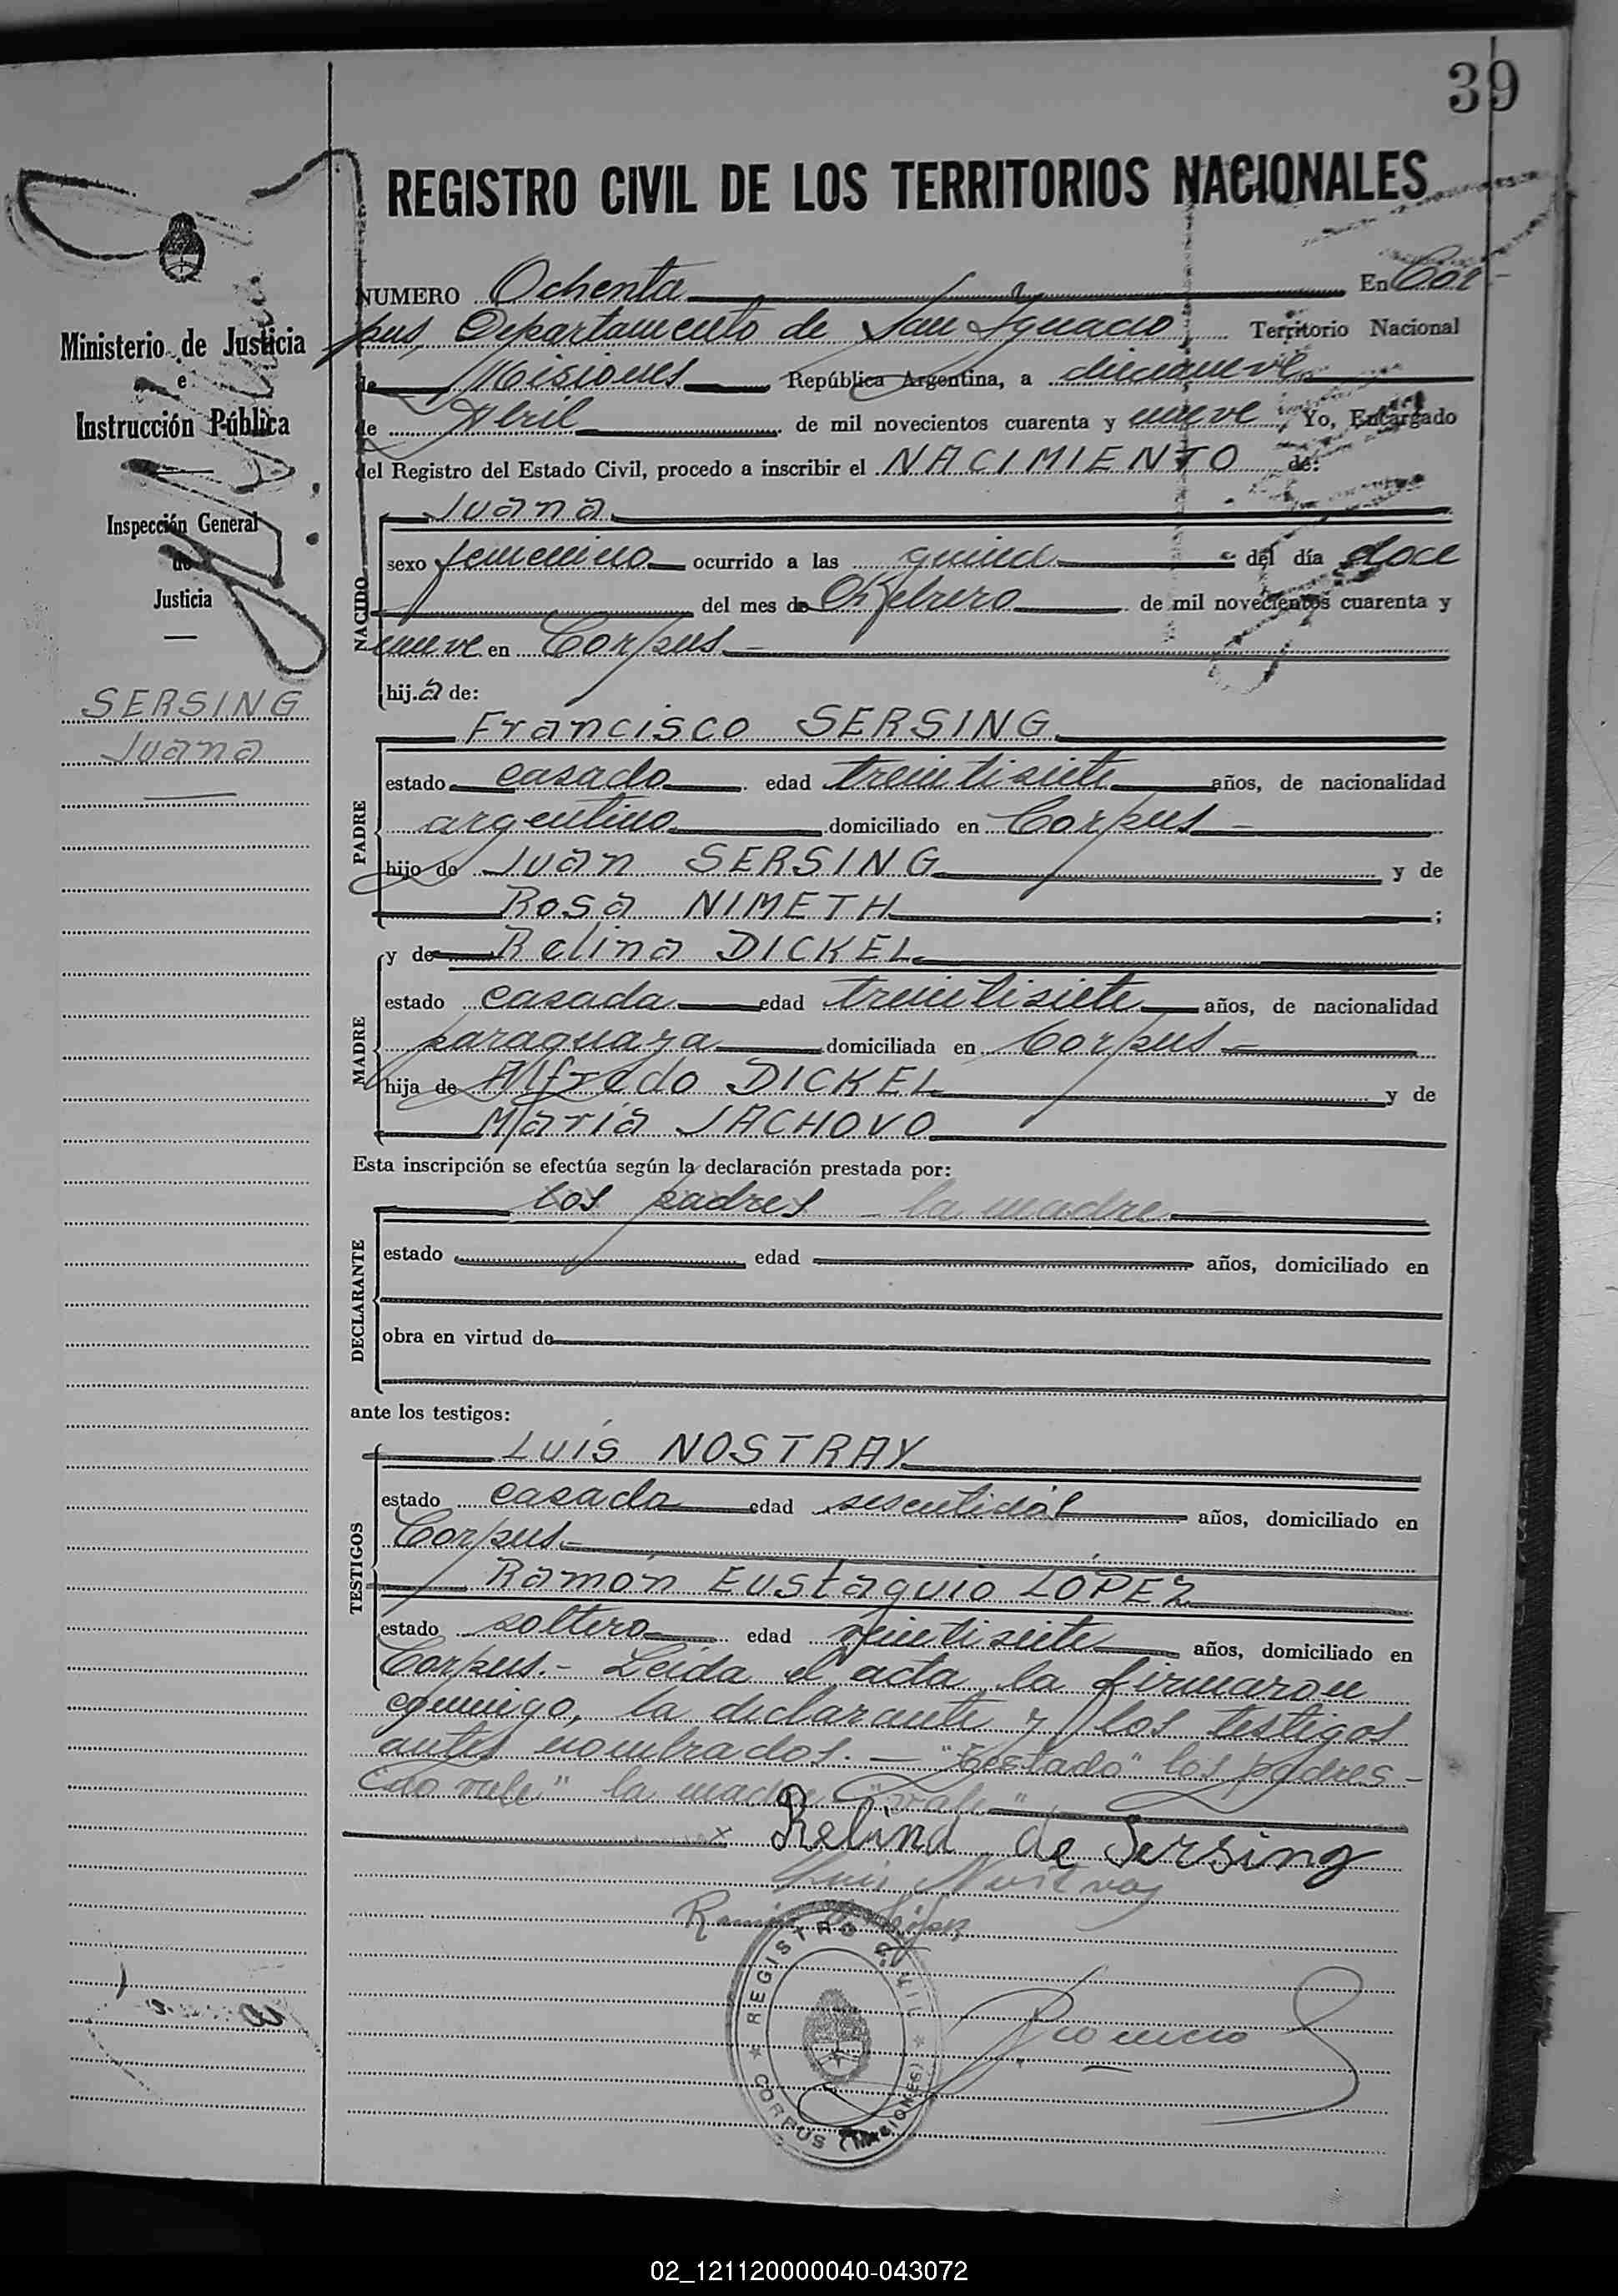 39
REGISTRO CIVIL DE LOS TERRITORIOS NACIONALES
Ministerio de Justicia
e
Instrucción Pública
Inspección General
de
Justicia
SERSING
Juana
NUMERO Ochenta En Cor
pus Departamento de San Ignacio Territorio Nacional
de Misiones República Argentina, a diecinueve
de Abril de mil novecientos cuarenta y nueve Yo, Encargado
del Registro del Estado Civil, procedo a inscribir el NACIMIENTO de:
NACIDO
Juana
sexo femenino ocurrido a las quince del día doce
del mes de Febrero de mil novecientos cuarenta y
nueve en Corpus
hija de:
PADRE
Francisco SERSING
estado casado edad treintisiete años, de nacionalidad
argentino domiciliado en Corpus
hijo de Juan SERSING y de
Rosa NIMETH ;
MADRE
y de Relina DICKEL
estado casada edad treintisiete años, de nacionalidad
paraguaya domiciliada en Corpus
hija de Alfredo DICKEL y de
María JACHOVO
Esta inscripción se efectúa según la declaración prestada por:
DECLARANTE
los padres - la madre
estado edad años, domiciliado en
obra en virtud de
ante los testigos:
TESTIGOS
Luís NOSTRAY
estado casado edad sesentidós años, domiciliado en
Corpus.-
Ramón Eustaquio LÓPEZ
estado soltero edad veintisiete años, domiciliado en
Corpus.- Leída el acta la firmaron
conmigo, la declarante y los testigos
antes nombrados.- "Testado" los padres -
"no vale" la madre "vale"
x Relind de Sersing
Luis Nostray
Ramón E. López
REGISTRO CIVIL
CORPUS (MISIONES)
02_121120000040-043072